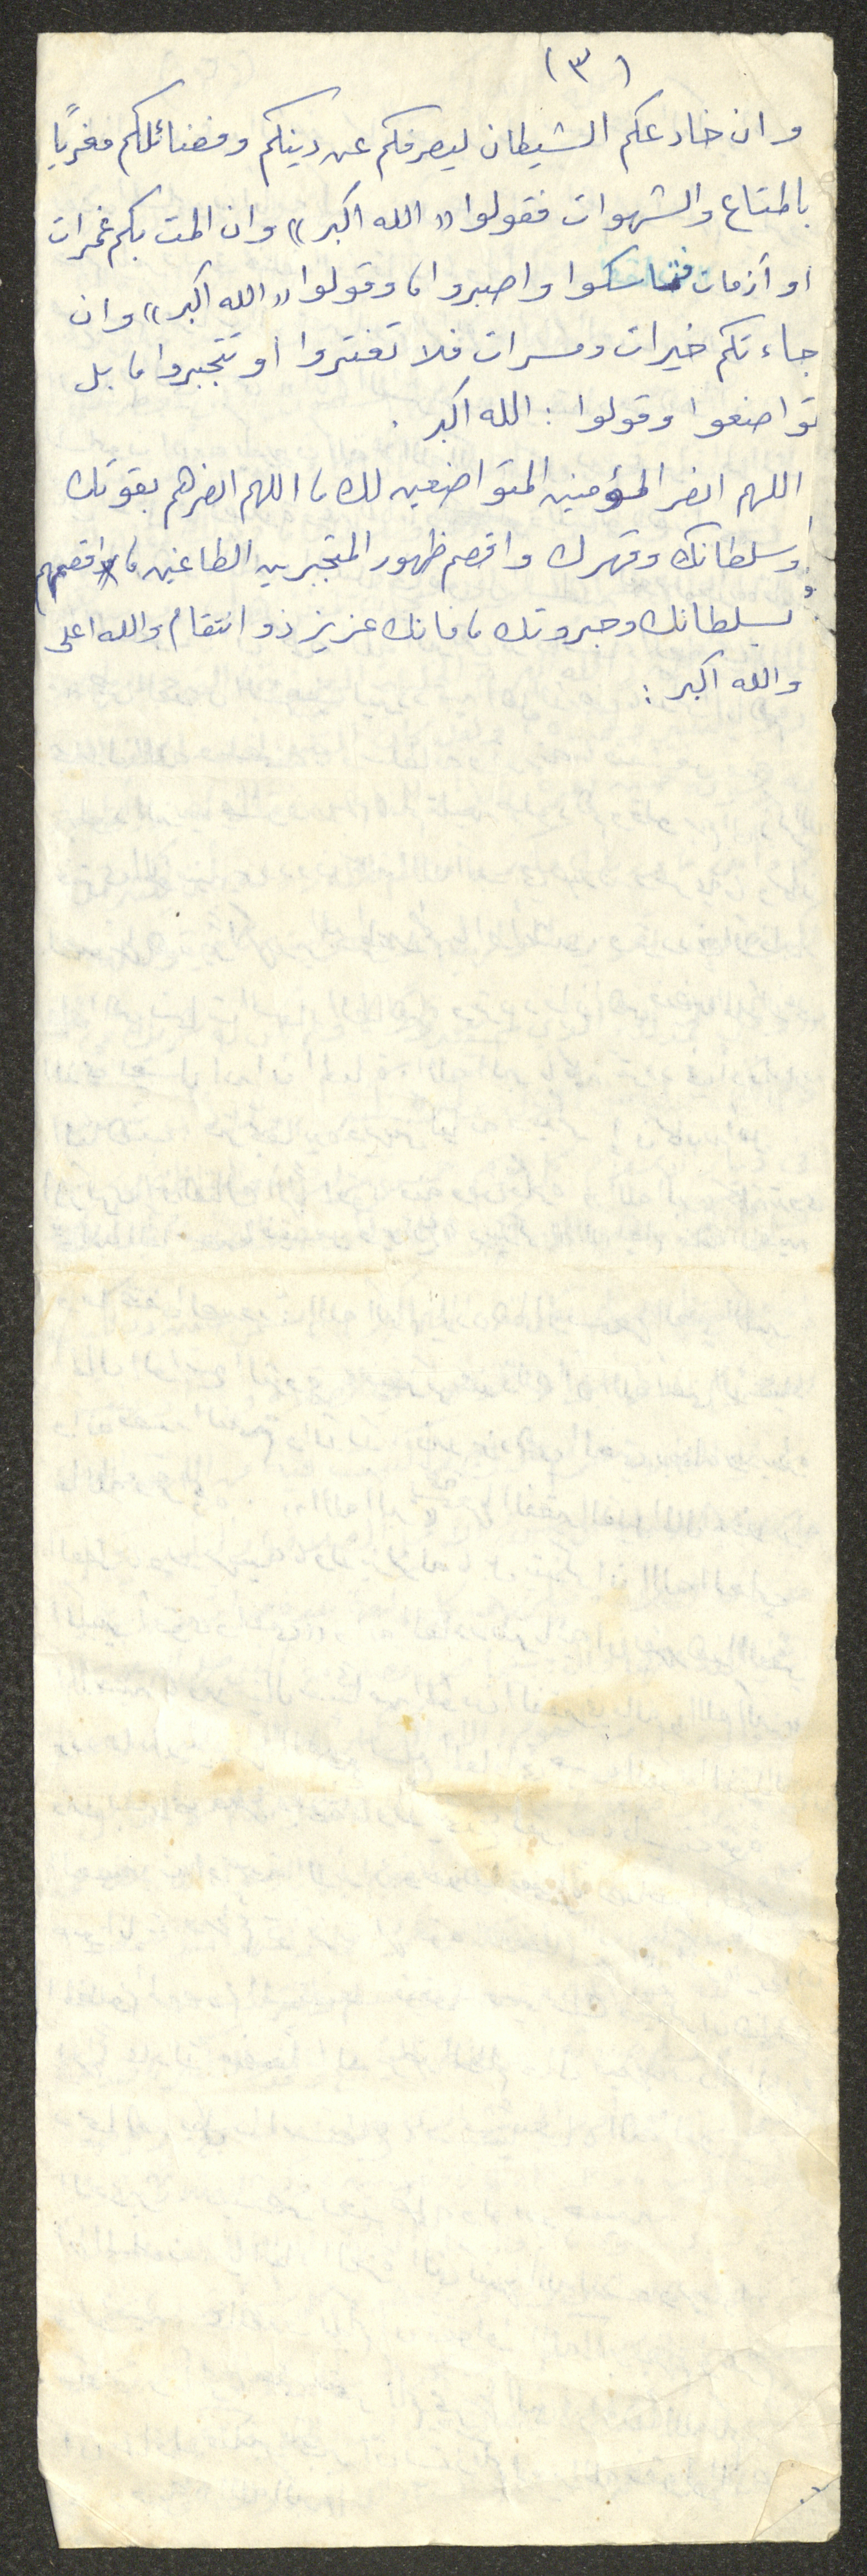 (٣)
وان خادعكم الشيطان ليصرفكم عن دينكم وفضائلكم مغريًا
بالمتاع والشهوات فقولوا «الله اكبر» وان المت بكم غمرات
او أزمات فتماسكوا واصبروا، وقولوا «الله اكبر» وان
جاءتكم خيرات ومسرات فلا تغتروا أو تتجبروا، بل
تواضعوا وقولوا : الله اكبر .
اللهم انصر المؤمنين المتواضعين لك، اللهم انصرهم بقوتك
وسلطانك وقهرك واقصم ظهور المتجبرين الطاغين، واقصمهم
بسلطانك وجبروتك، فانك عزيز ذو انتقام والله اعلى
والله اكبر :